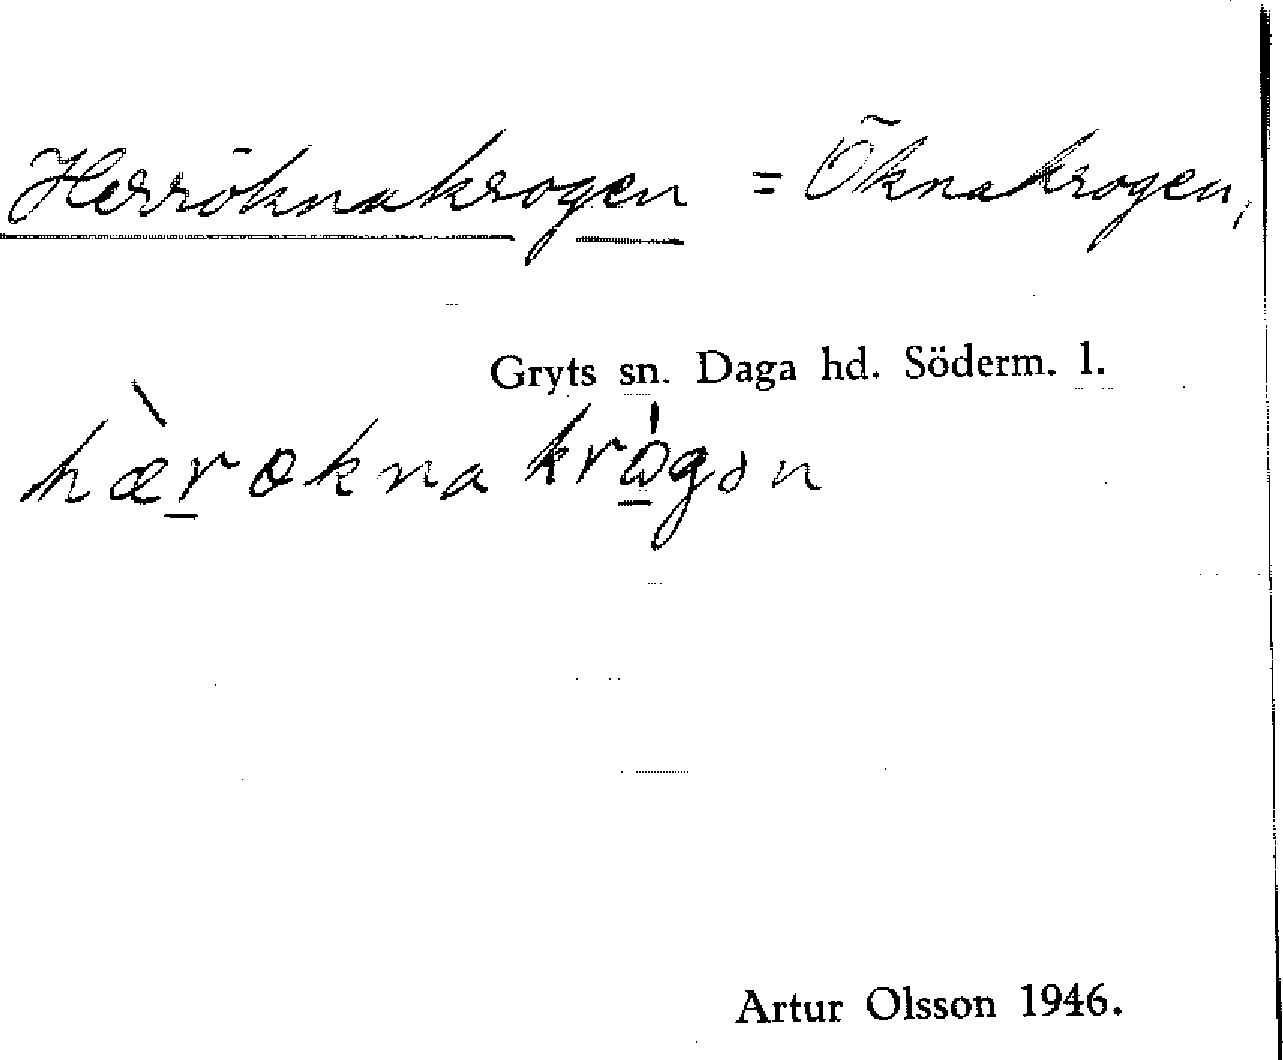 Herröknakrogen = Öknakrogen,
Gryts sn. Daga hd. Söderm. l.
Artur Olsson 1946.